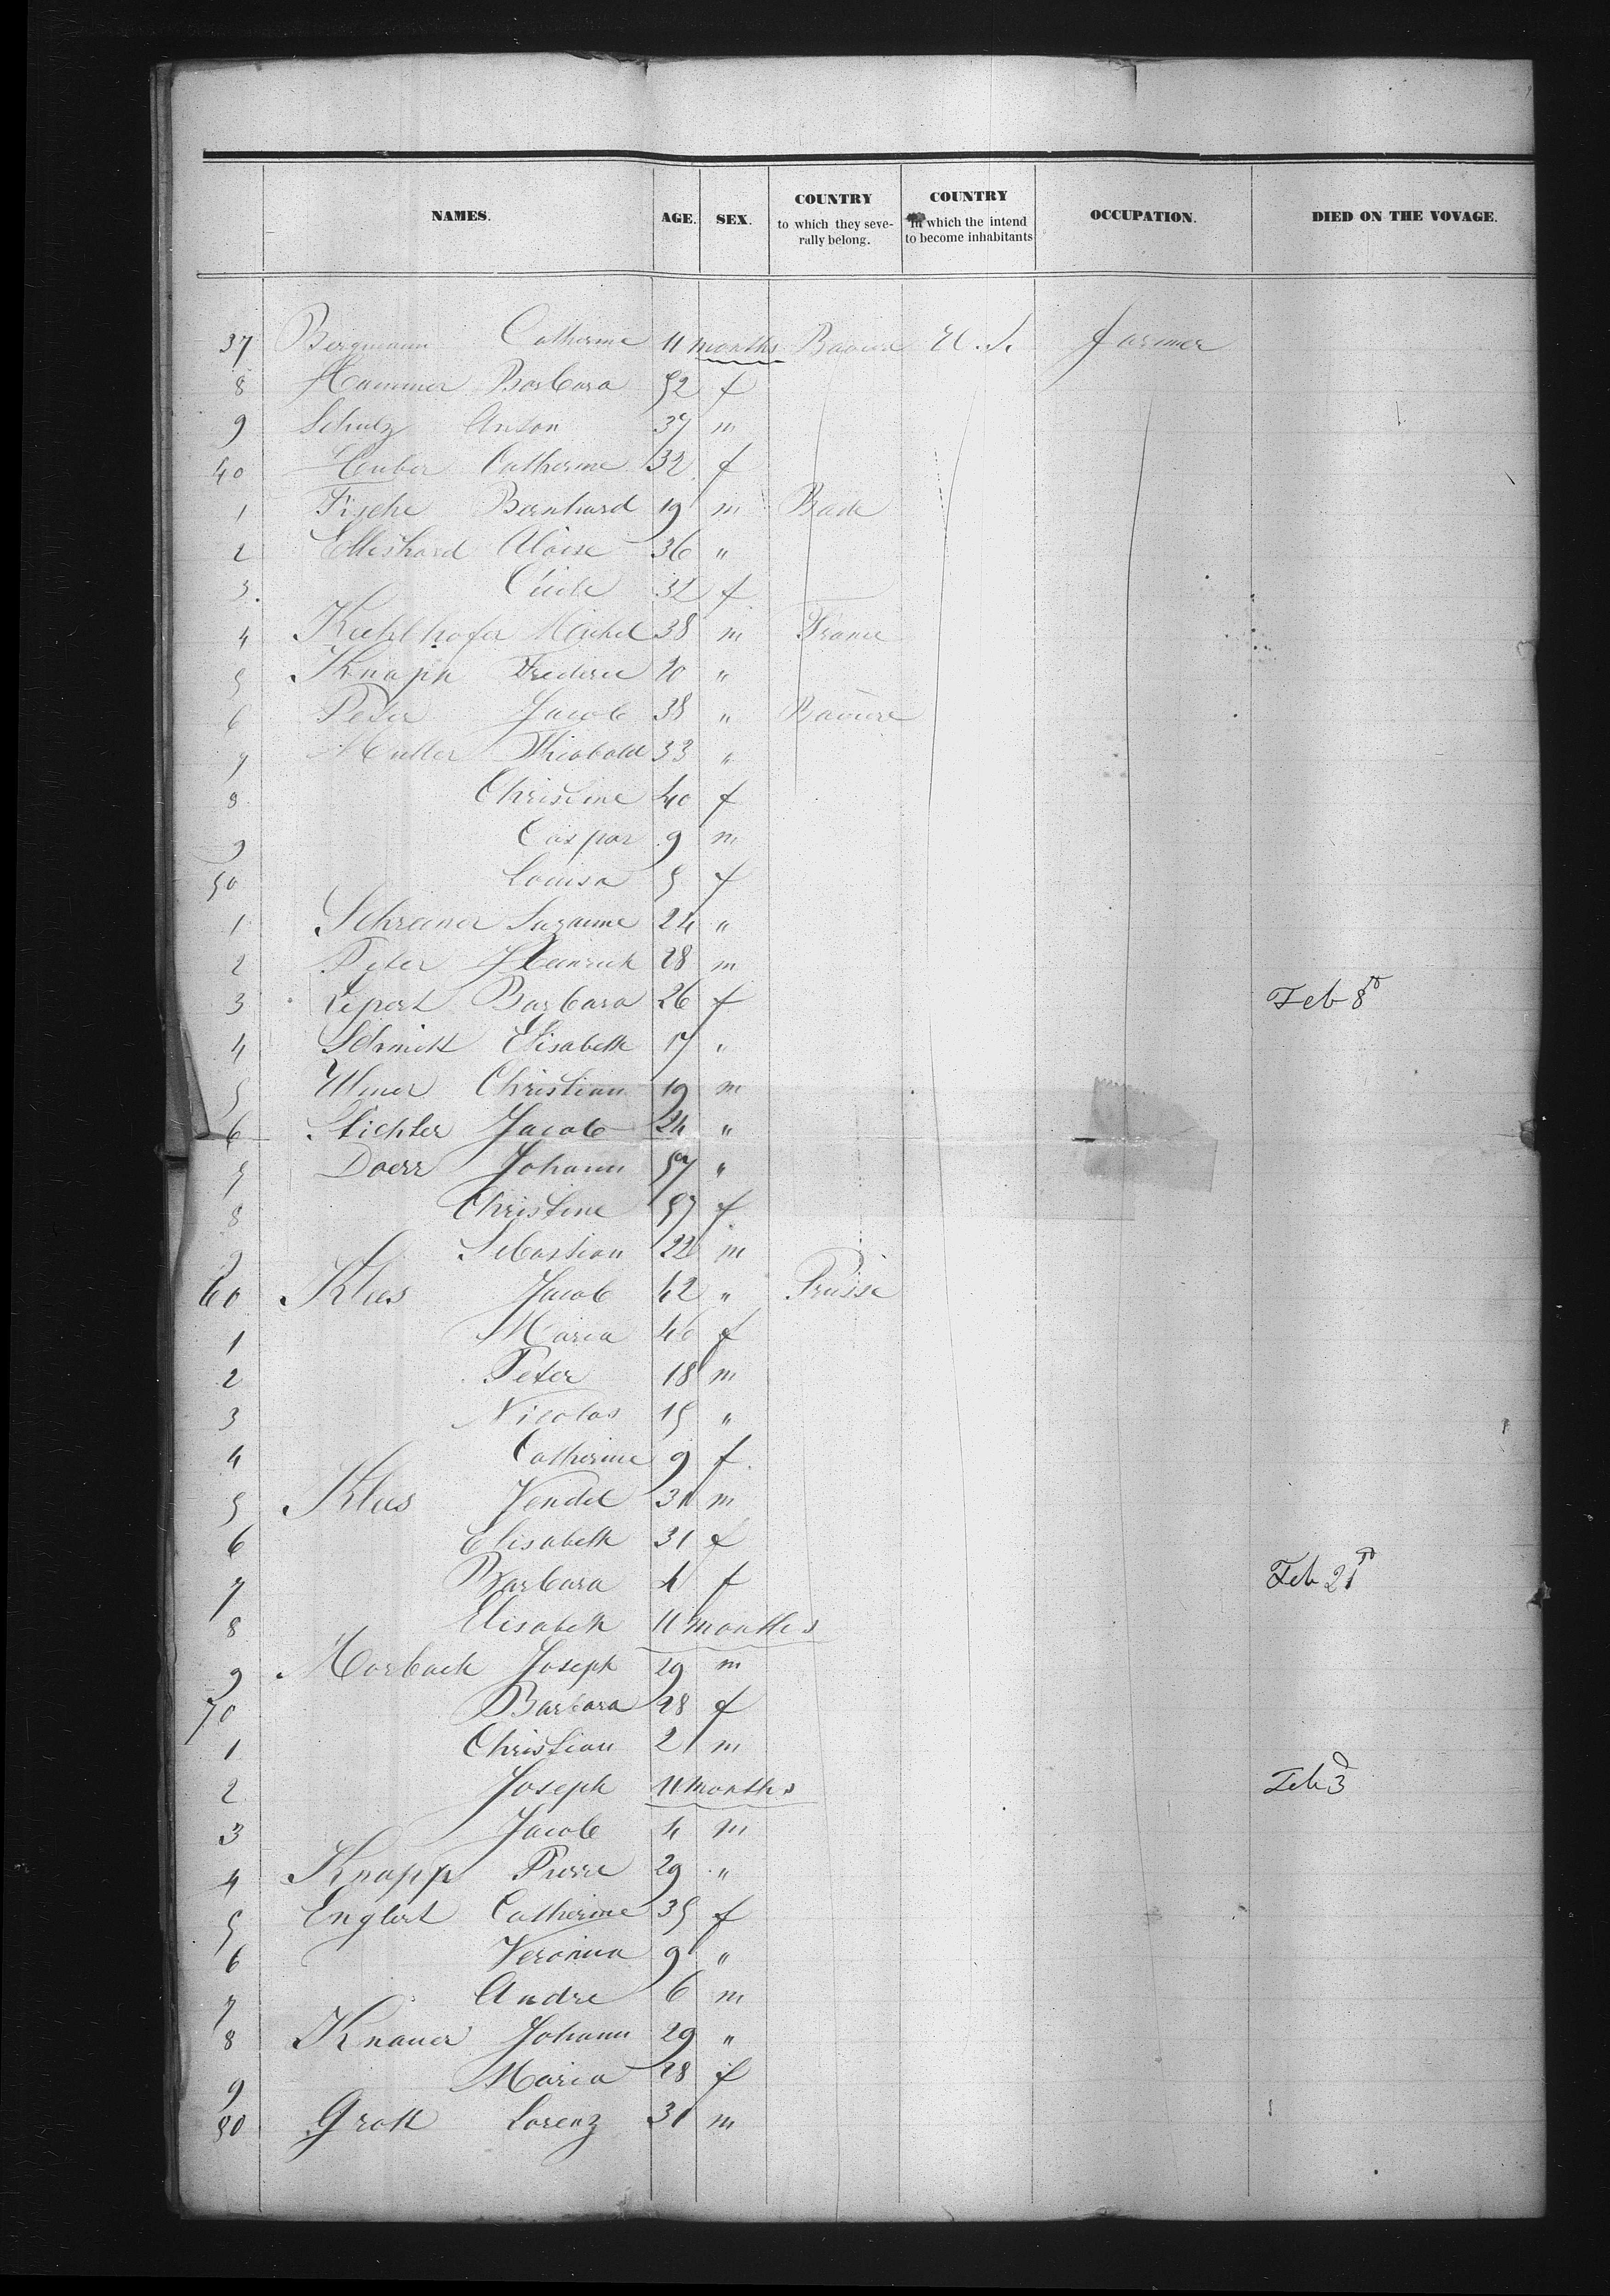 NAMES. AGE. SEX. COUNTRY to which they seve- rally belong. COUNTRY in which the intend to become inhabitants OCCUPATION. DIED ON THE VOVAGE.
37 Bergmann Catherine 11 months Baviere U.S. farmer
8 Hammer Barbara 52 f
9 Schulz Anton 37 m
40 Huber Catherine 32 f
1 Bernhard 19 m Bade
2 Aloise 36 "
3 32 f
4 Michel 38 m France
5 Knaph Frederic 20 "
6 Peter Jacob 38 " Baviere
7 Muller Thiobald 33 "
8 Christine 40 f
9 Caspar 9 m
50 Louisa 5 f
1 Schreiner Suzanne 24 "
2 Peter Heinrich 28 m
3 Barbara 26 f Feb 8
4 Schmitt Elisabeth 17 "
5 Ulmer Christian 19 m
6 Stichter Jacob 24 "
7 Doerr Johann 57 "
8 Christine 57 f
9 Sebastian 22 m
60 Klees Jacob 42 " Prusse
1 Maria 46 f
2 Peter 18 m
3 Nicolas 15 "
4 Catherine 9 f
5 Klees Vendel 31 m
6 Elisabeth 31 f
7 Barbara 4 f Feb 21
8 Elisabeth 11 months
9 Morbach Joseph 29 m
70 Barbara 28 f
1 Christian 2 m
2 Joseph 11 months Feb 3
3 Jacob 4 m
4 Knapp Pierre 29 "
5 Englert Catherine 35 f
6 Veronica 9 "
7 Andre 6 m
8 Knauer Johann 29 "
9 Maria 28 f
80 Grott Lorenz 31 m